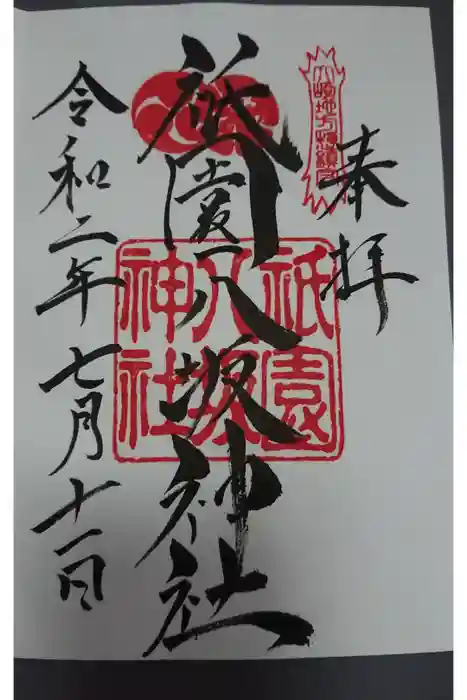 奉拝
祇園八坂神社
令和二年七月十一日
祇園
八坂
神社